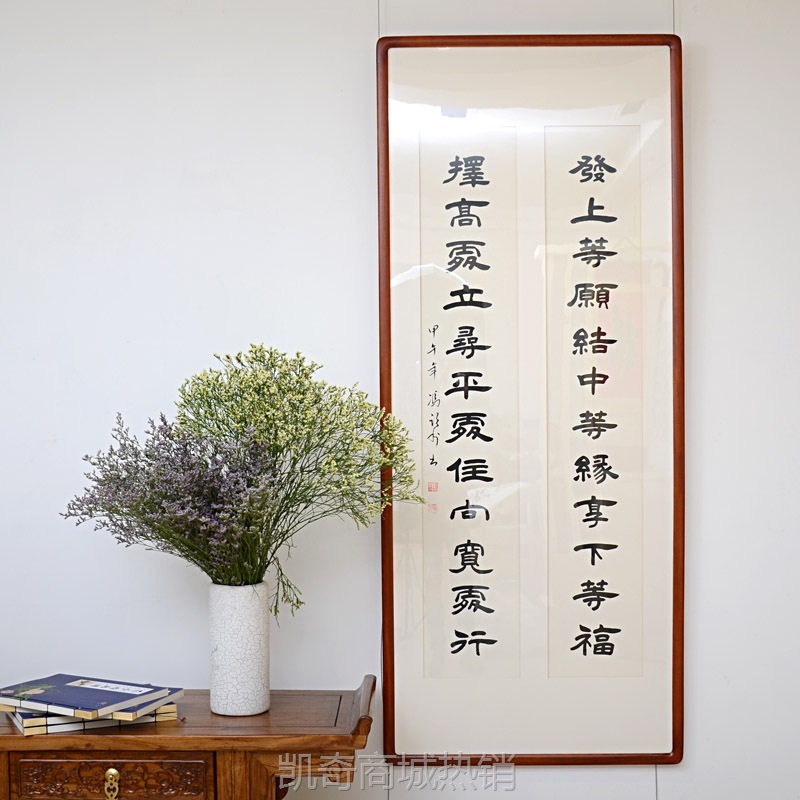 發上等願結中等緣享下等福
擇高處立尋平處住向寬處行
甲午年馮
凯奇商城热销